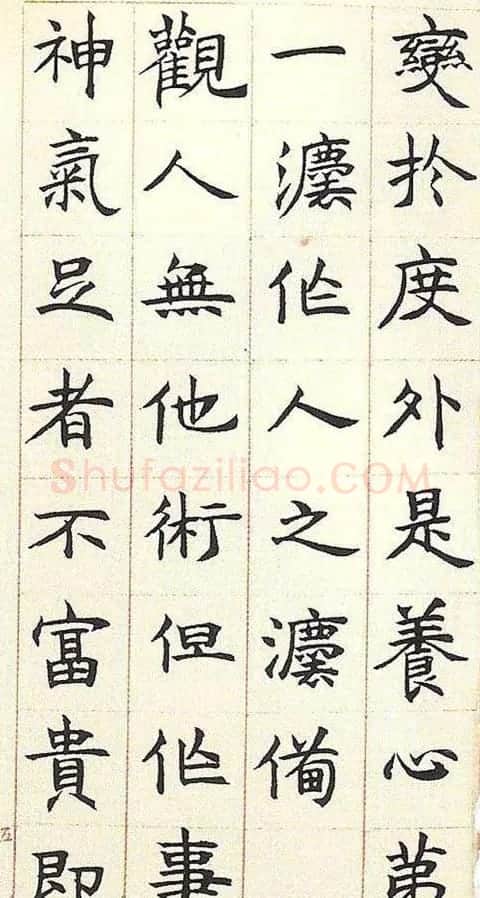 變扵度外是養心苐
一灋作人之灋備
觀人無他術但作事
神氣足者不富貴即
五
Shufaziliao.COM